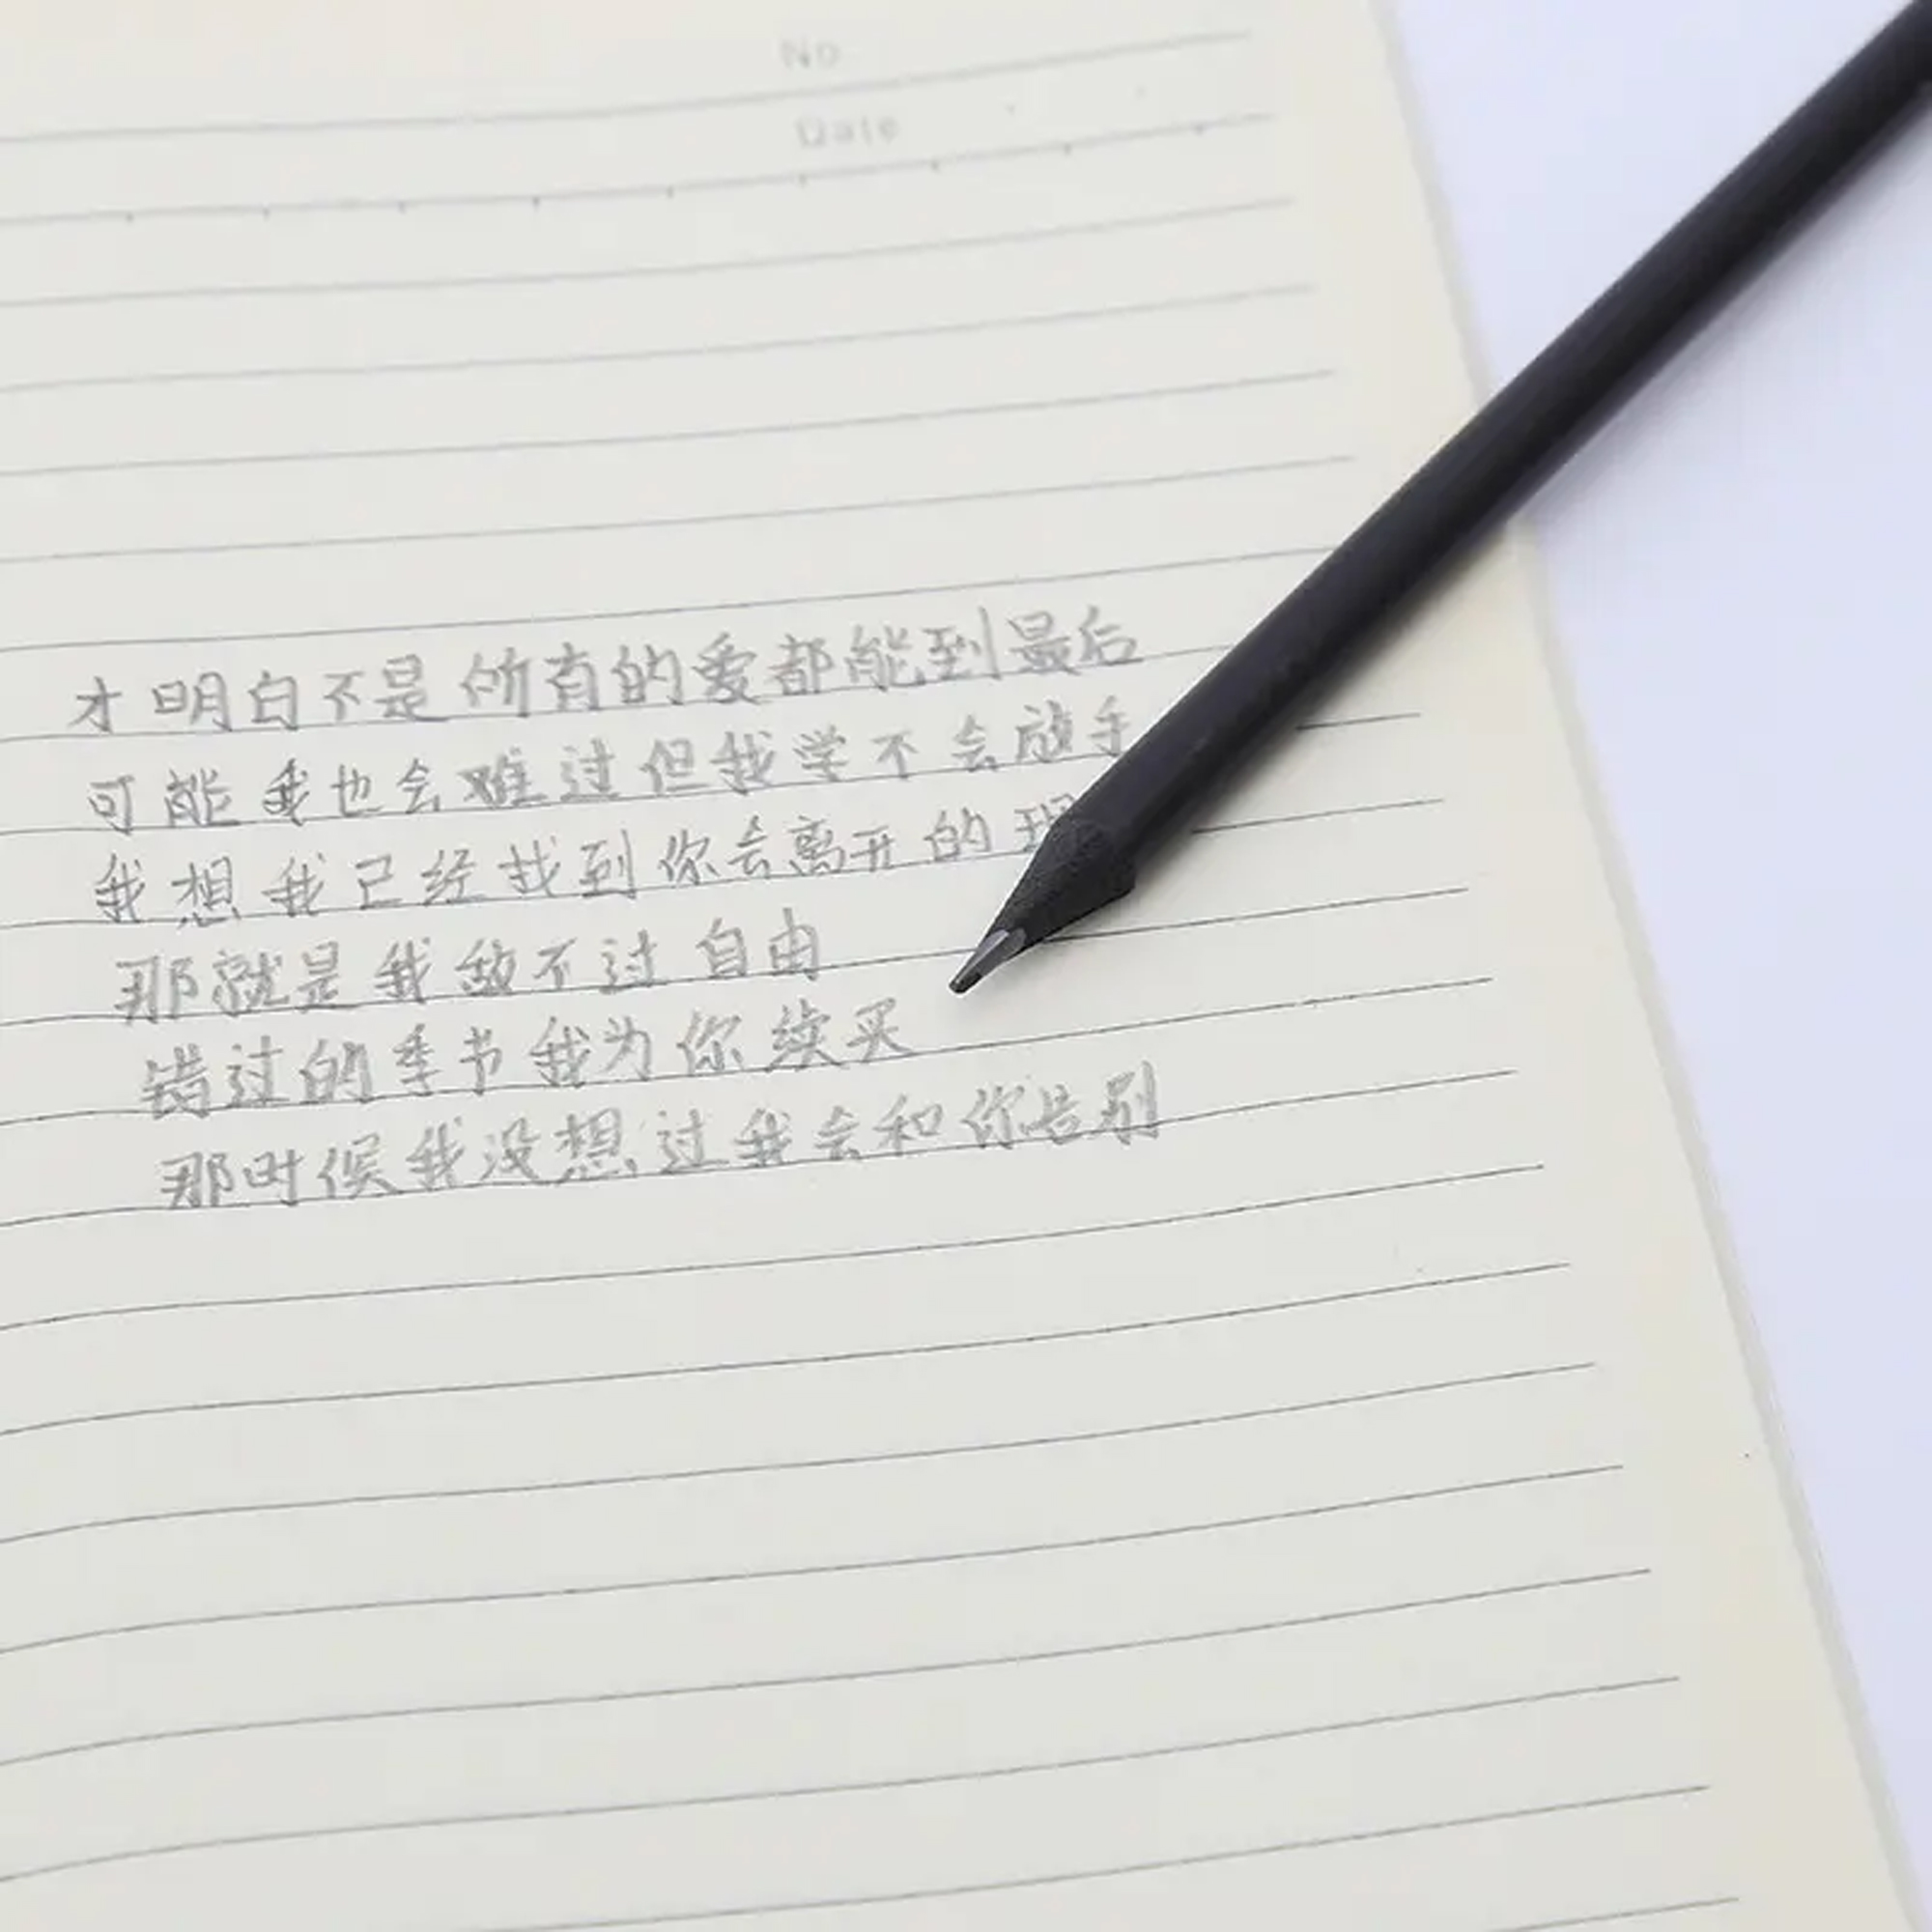 No
Date
才明白不是所有的爱都能到最后
可能我也会难过但我学不会放手
我想我已经找到你会离开的理
那就是我敌不过自由
错过的季节我为你续买
那时候我没想过我会和你告别